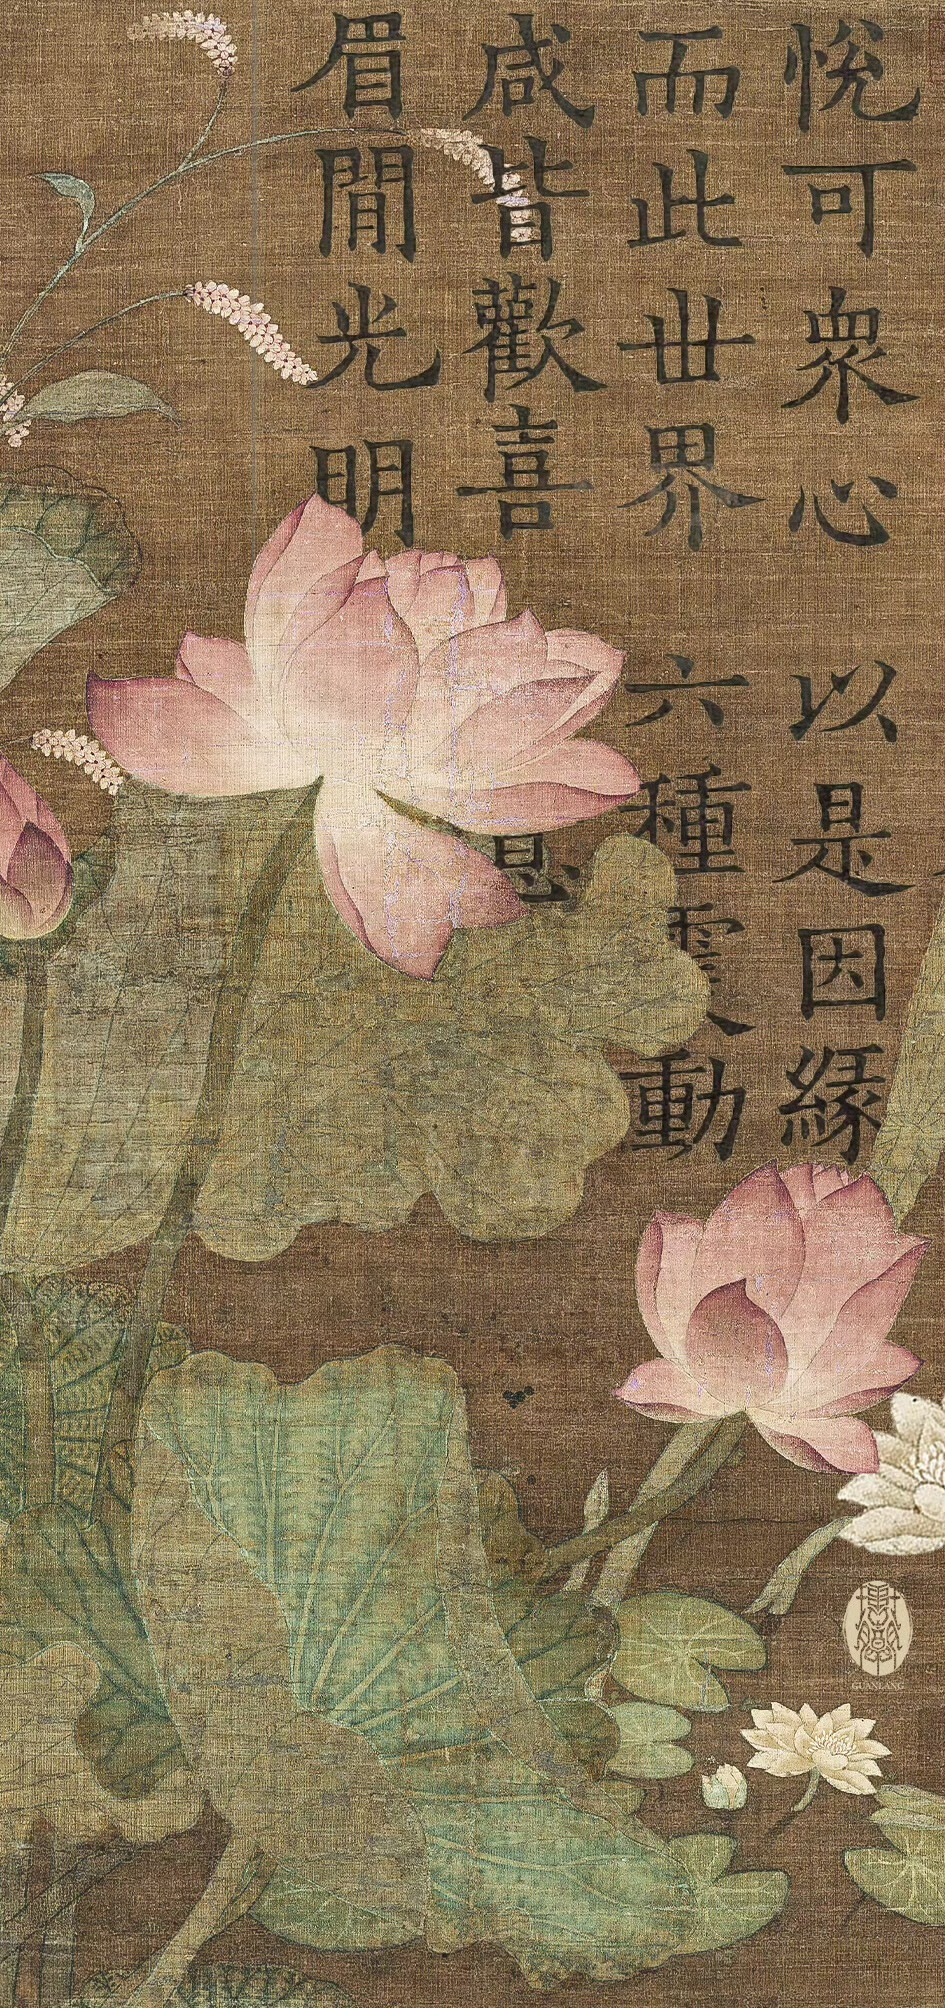 悅可衆心　以是因緣
而此丗界　六種震動
咸皆歡喜
眉閒光明
GUANLANG